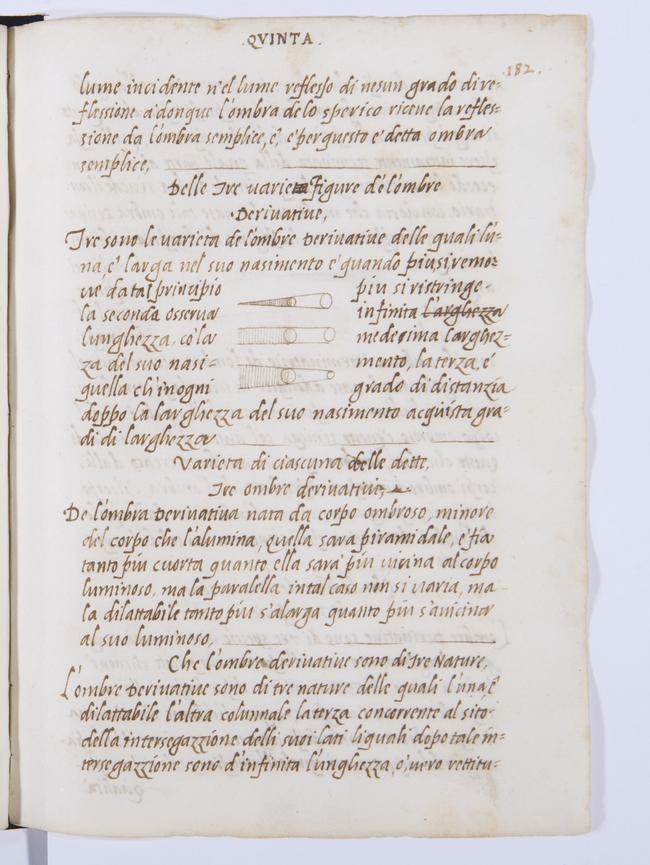 QVINTA.
182.
lume incidente n'el lume reflesso di nesun grado di re=
flessione adonque l'ombra delo sperico riceve la refles=
zione da l'ombra semplice, e, e per questo e detta ombra
semplice,
Delle Tre varieta figure de l'ombre
Derivative,
Tre sono le varieta de l'ombre Derivative delle quali l'u=
na, e' larga nel suo nasimento e quando piu si remo=
ve, da tal principio piu si ristringe
la seconda osserva infinita l'arghezza
lunghezza, co'la medesima larghez=
za del suo nasi= mento, la terza, e'
quella ch'inogni grado di distanzia
doppo la larghezza del suo nasimento acquista gra=
di di larghezza
Varieta di ciascuna delle dette,
Tre ombre derivative,
De l'ombra Derivativa nata da corpo ombroso, minore
del corpo che l'alumina, quella sara piramidale, e fia
tanto piu cuorta quanto ella sara piu vicina al corpo
luminoso, ma la paralella intal caso non si varia, ma
la dilattabile tanto piu s'alarga quanto piu s'avicina
al suo luminoso,
Che l'ombre derivative sono di tre Nature,
L'ombre Derivative sono di tre nature delle quali l'una, e'
dilattabile l'altra colunnale la terza concorrente al sito
della intersegazzione delli suoi lati li quali dopo tale in=
tersegazzione sono d'infinita l'unghezza, o, vero rettitu=